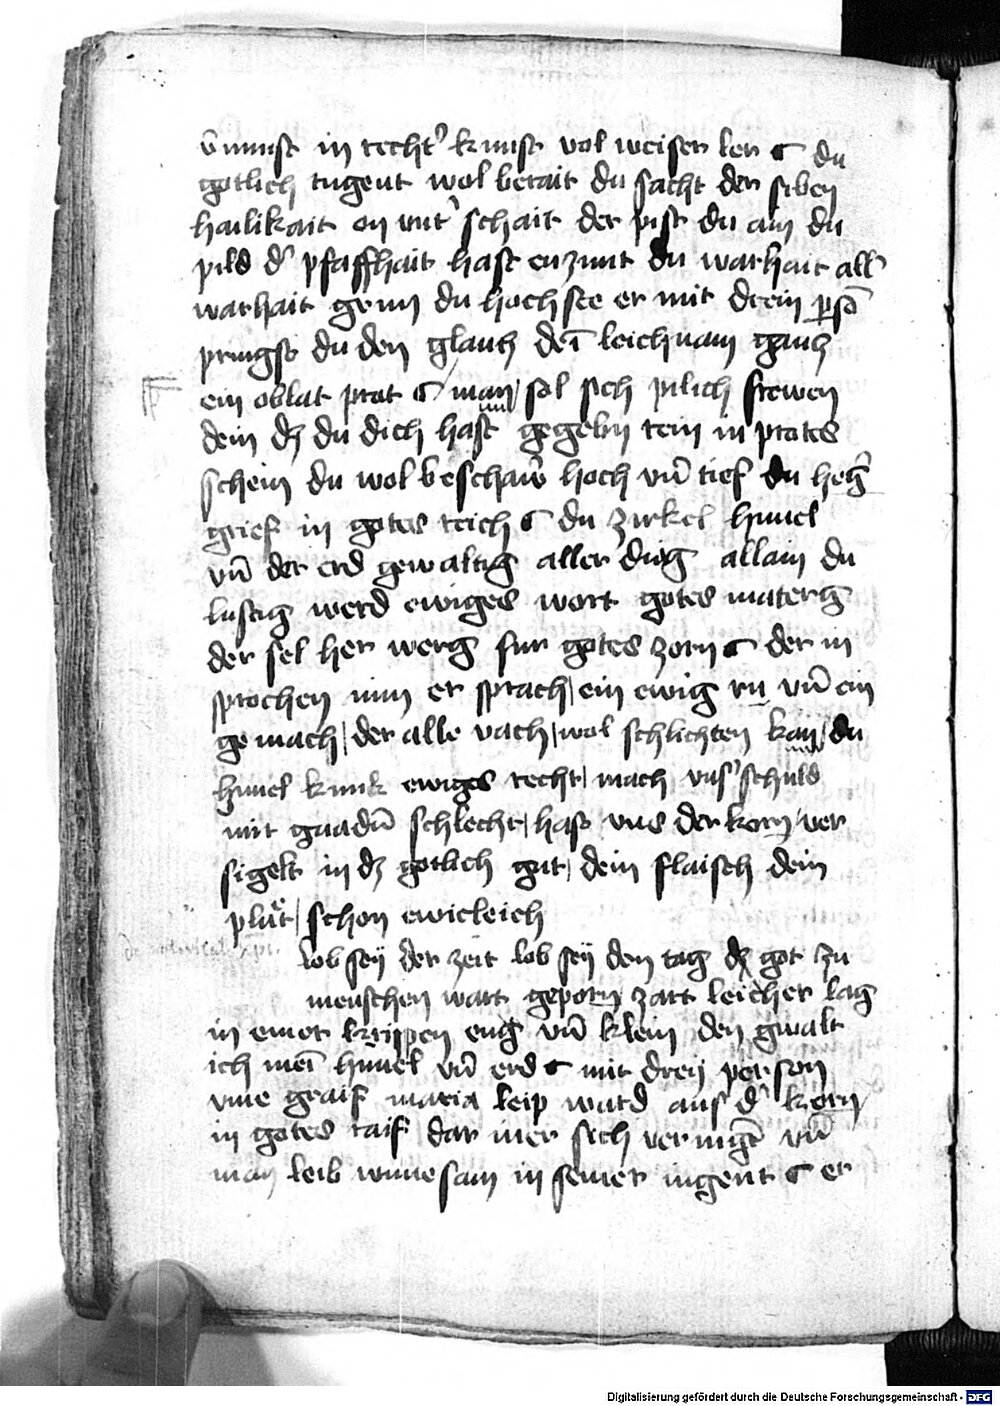 v̄nunft in recht' kunst vol weiser ler du
gotlich tugent wol berait du sacht der siben
hailikait on unt' schait der pist du ain du
pild d' pfaffhait hast enzunt du warhait all'
warhait grun du hoch see er mit drein ꝑso
pringst du den glantz dei leichnam gantz
ein oblat prot man sol sich pilich frewen
dein dz du dich hast gegebn rein in protes
schein du wol beschawr hoch vn̄ tief du
grief in gotes reich du zirkel himel
vn̄ der erd gewaltig aller ding allain du
lustig werd ewiges wort gotes
der sel her werg fur gotes zorn der in
sprochen nim er sprach ein ewig ru vn̄ ein
gemach der alle vach wol schlichten kan du
himel kunk ewiges recht mach vns' schuld
mit gnadn̄ schlecht hast vns der korn ver
sigelt in dz gotlich gut dein flaisch dein
plut schon ewicleich
lob sey der zeit lob sey den tag dz got zu
menschen wart geporn zart leicher lag
in einer krippen eng vn̄ klein den gwalt
ich mei himel vn̄ erd mit dreij person
vme graif maria leip ward aus d' korn
in gotes raif dar iner sich vn̄
man leib wunesam in seiner iugent er
Digitalisierung gefördert durch die Deutsche Forschungsgemeinschaft - DFG